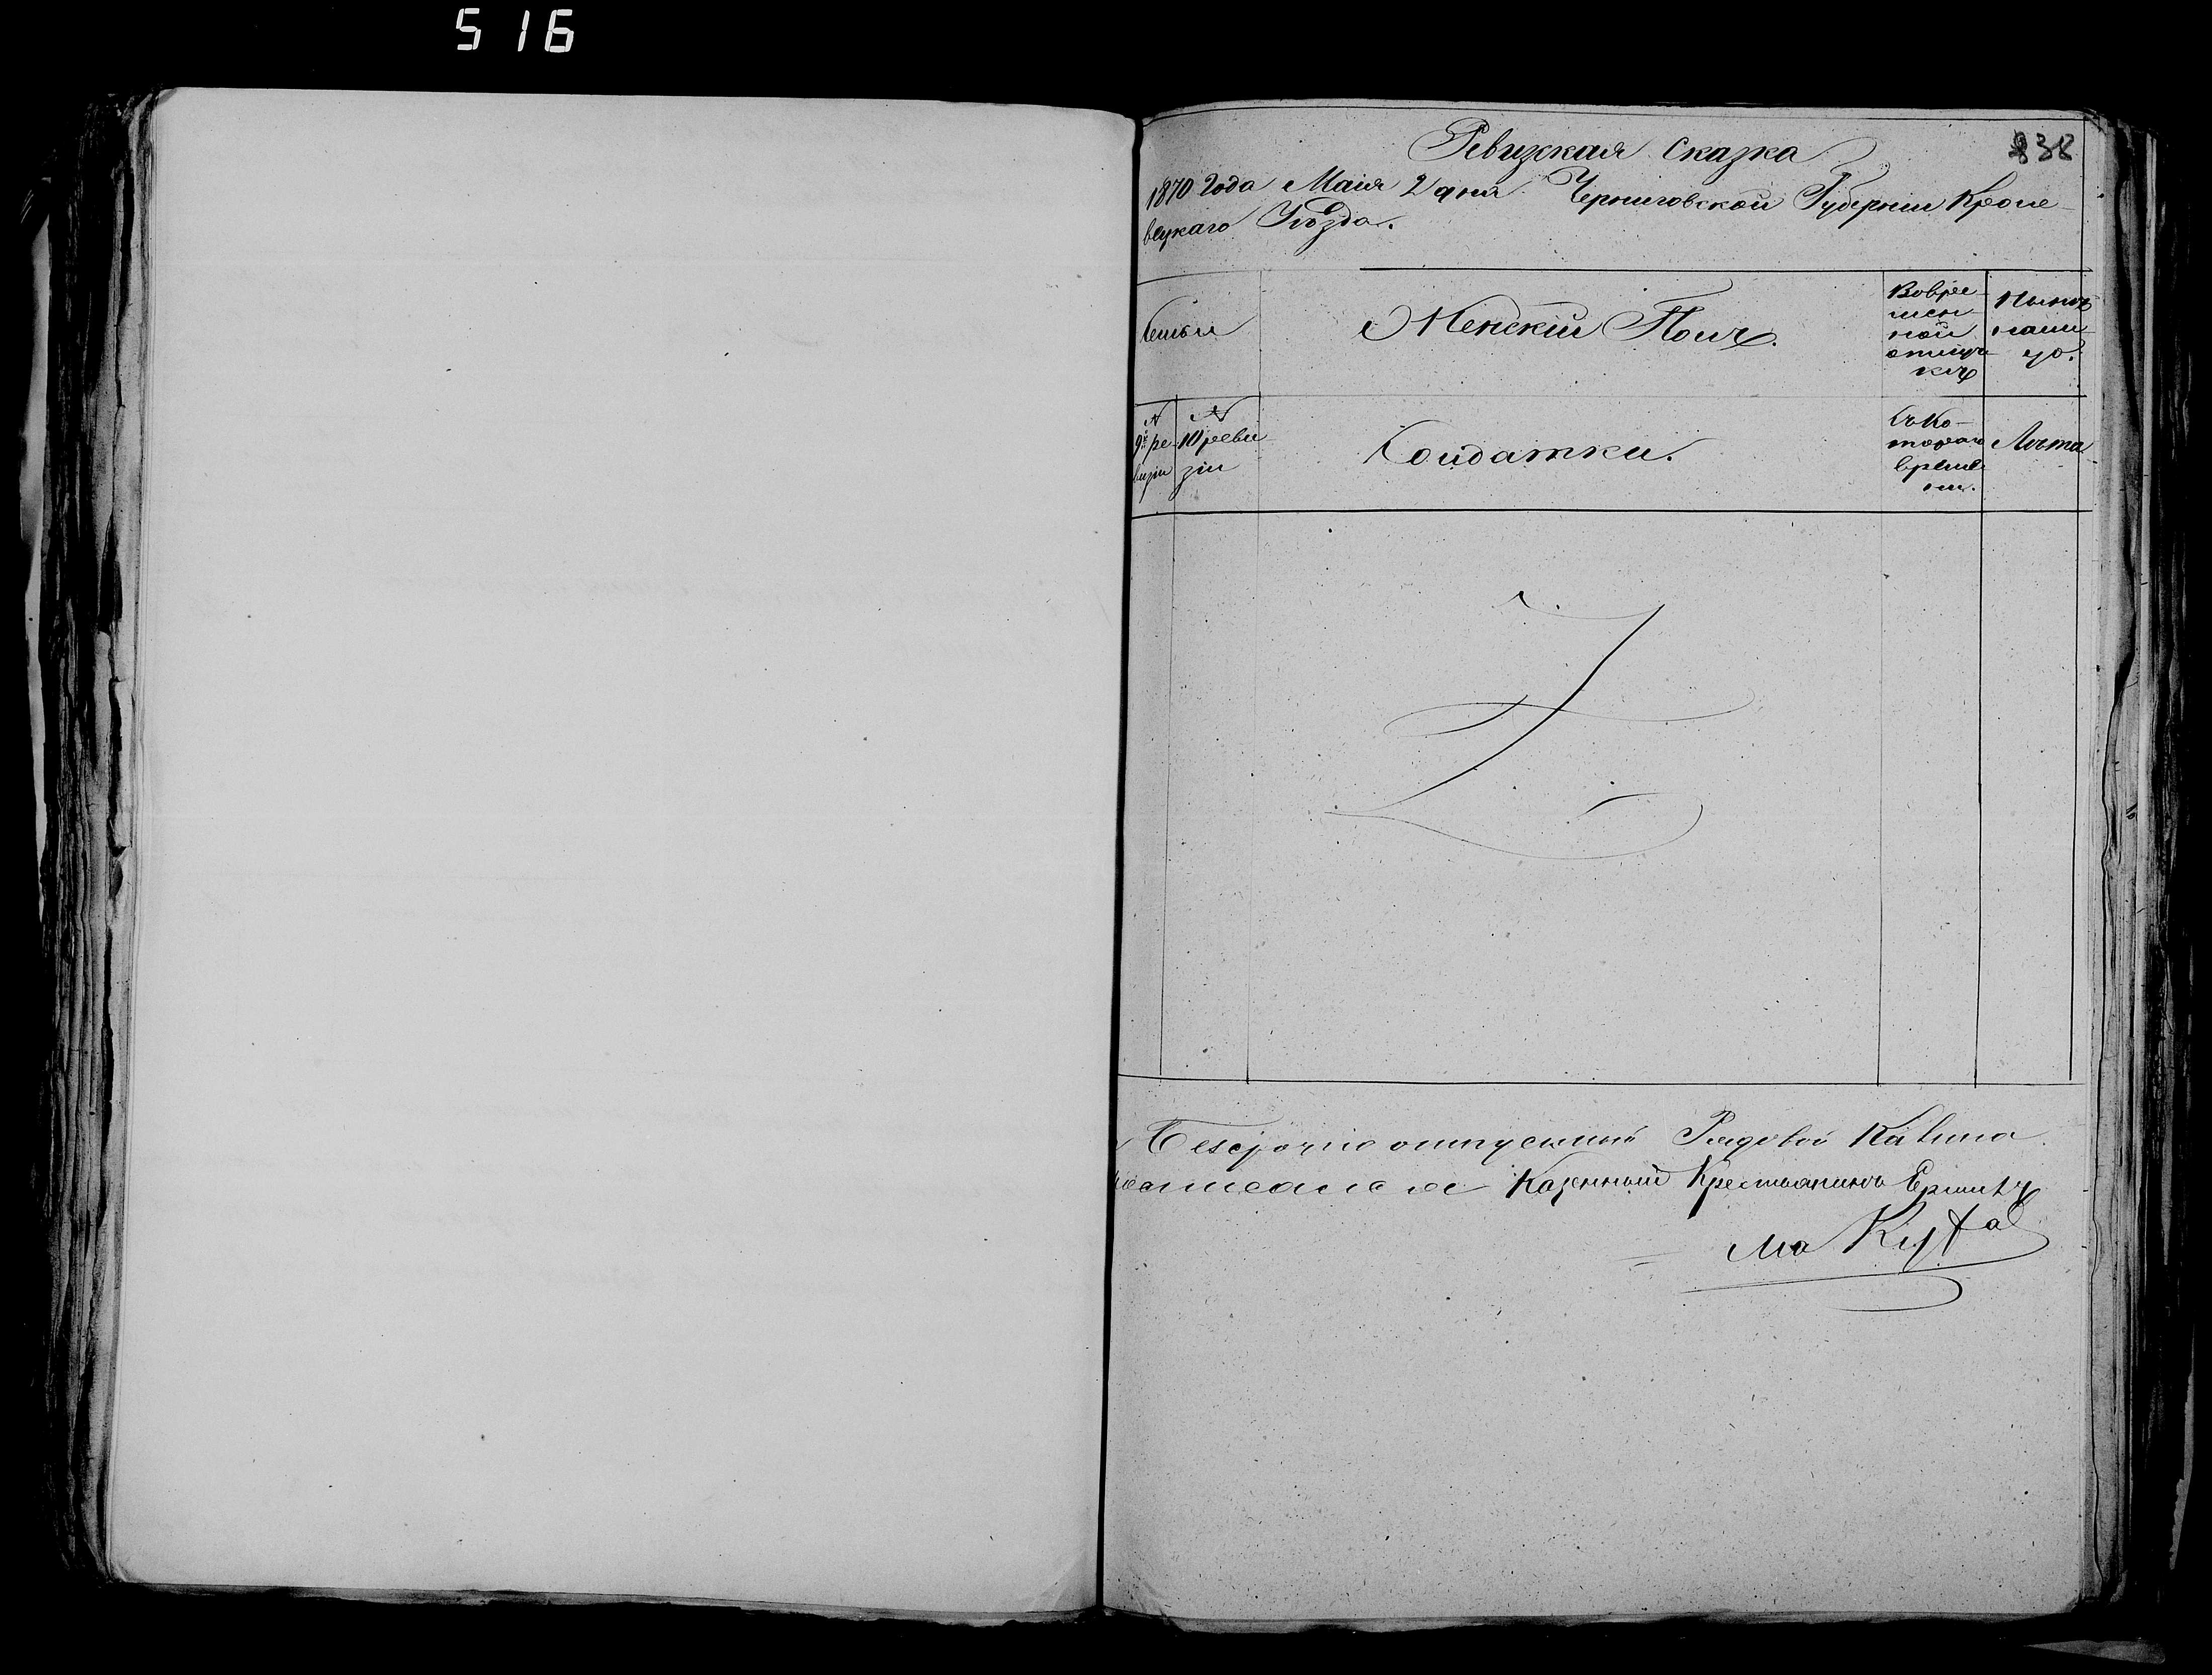 516
838
Ревизская Сказка
1870 Года Маія 2 дня Черниговской Губерніи Кроле-
вецкаго Уѣзда.
Семьи
Женскій Полъ.
Во вре-
мен-
ной
отлуч-
кѣ
Нынѣ
на ли-
цо.
№
9й ре-
визіи
№
10 реви-
зіи
Солдатки.
Съ ко-
тораго
време-
ни.
Лѣта
Безсрочно отпускный Рядовой
Казенный Крестьянинъ